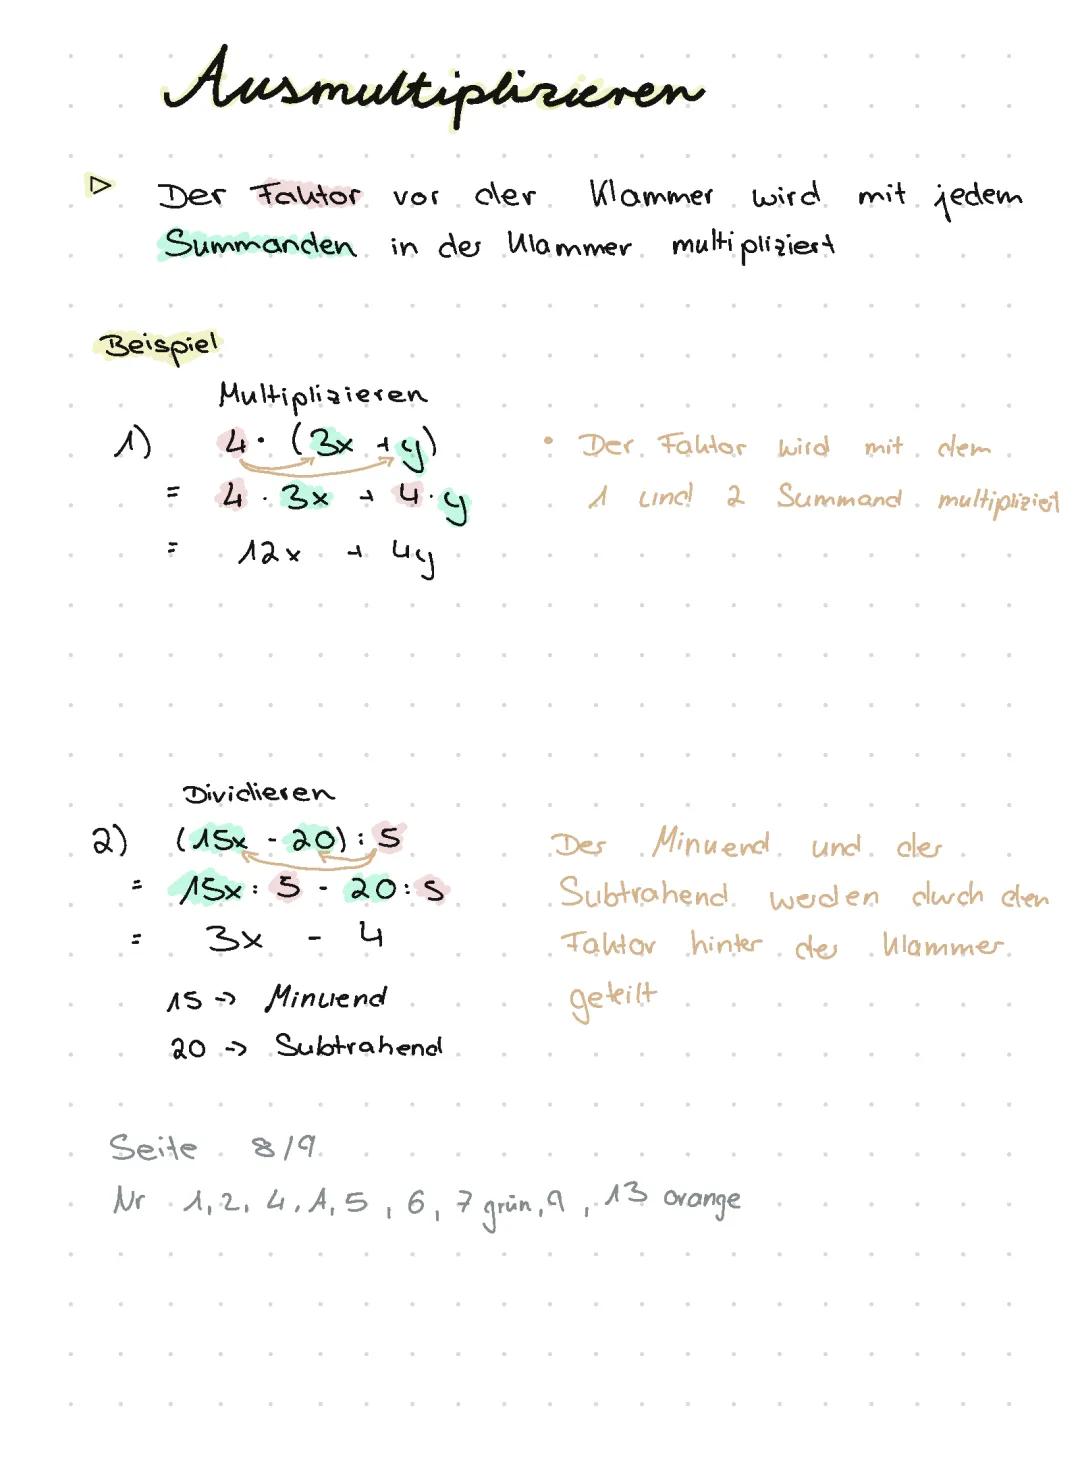 Ausmultiplizieren
▷ Der Faktor vor der Klammer wird mit jedem
Summanden in der Klammer multipliziert
Beispiel
Multiplizieren
1) 4 · (3x + y)
= 4 · 3x + 4 · y
= 12x + 4y
• Der Faktor wird mit dem
1 und 2 Summand multipliziert
Dividieren
2) (15x - 20) : 5
= 15x : 5 - 20 : 5
= 3x - 4
15 -> Minuend
20 -> Subtrahend
Der Minuend und der
Subtrahend werden durch den
Faktor hinter der Klammer
geteilt
Seite 8/9
Nr 1, 2, 4, 1, 5, 6, 7 grün, 9, 13 orange